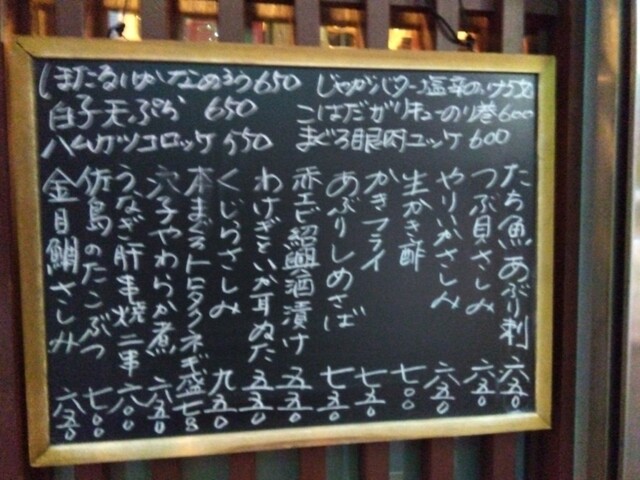 ほたるいかなめろう650
白子天ぷら 650
ハムカツコロッケ 550
じゃがバター塩辛のっけ
こはだガリキューのり巻600
まぐろ眼肉ユッケ 600
たち魚あぶり刺 六五0
つぶ貝さしみ 六五0
やりいかさしみ 六五0
生かき酢 七00
かきフライ 七五0
あぶりしめさば 七五0
赤エビ紹興酒漬け 五五0
わけぎといか耳ぬた 五五0
くじらさしみ 九五0
本まぐろトロタクネギ盛 七
穴子やわらか煮 六五0
うなぎ肝串焼二串 六00
佐島のたこぶつ 七00
金目鯛さしみ 六五0